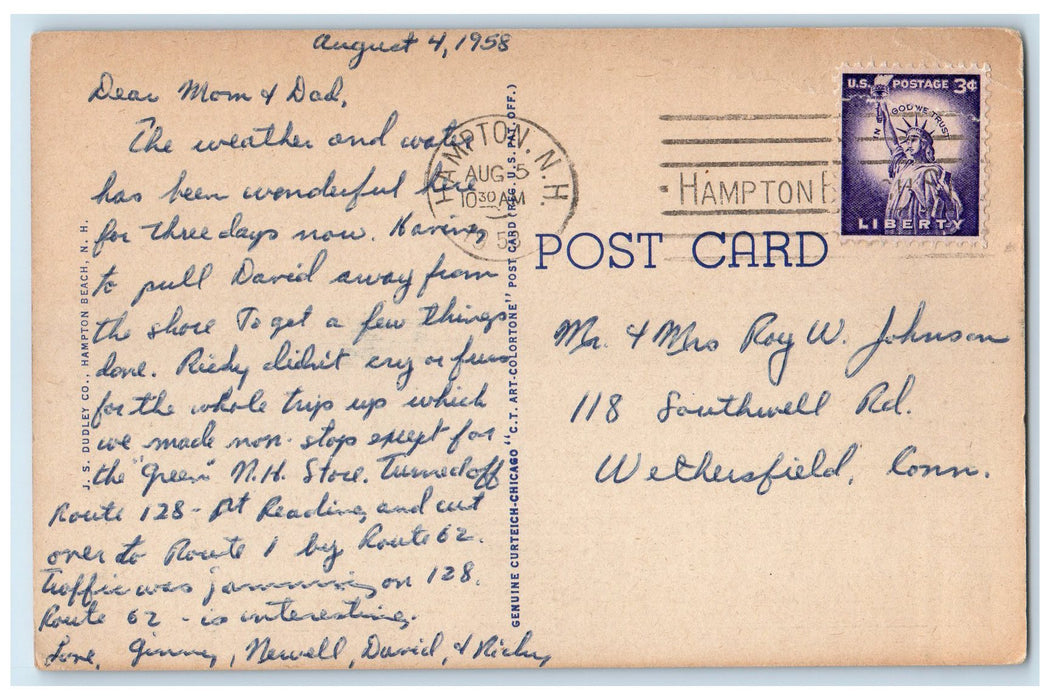 August 4, 1958
Dear Mom & Dad,
The weather and water
has been wonderful here
for three days now. Having
to pull David away from
the shore To get a few things
done. Ricky didn't cry or fuss
for the whole trip up which
we made non-stop except for
the "green" N.H. Store. Turned off
Route 128 - At Reading, and cut
over to Route 1 by Route 62.
Traffic was jamming on 128.
Route 62 - is interesting.
Love, Ginny, Newell, David, & Ricky
J. S. DUDLEY CO., HAMPTON BEACH, N. H.
GENUINE CURTEICH-CHICAGO "C.T. ART-COLORTONE" POST CARD (REG. U.S. PAT. OFF.)
HAMPTON, N.H.
AUG 5
10 30 AM
HAMPTON B
U.S. POSTAGE 3¢
IN GOD WE TRUST
LIBERTY
POST CARD
Mr. & Mrs Roy W. Johnson
118 Southwell Rd.
Wethersfield, Conn.